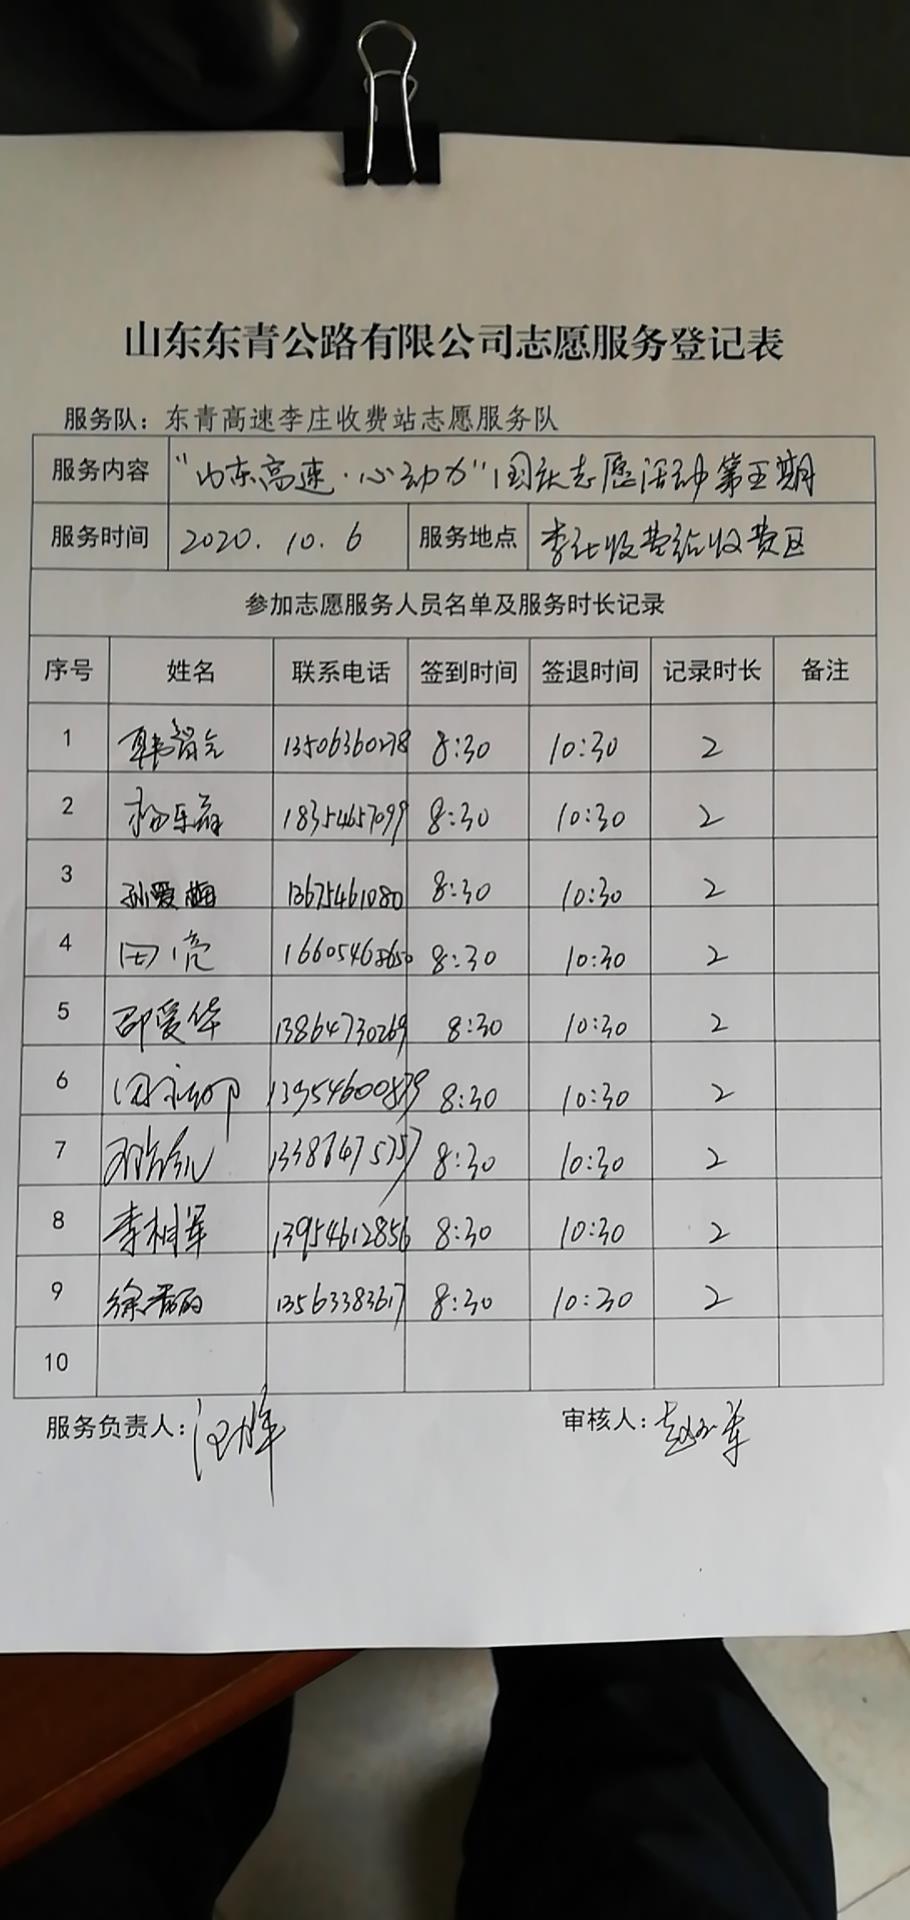 山东东青公路有限公司志愿服务登记表
服务队：东青高速李庄收费站志愿服务队
服务内容 “山东高速·心动力”国庆志愿活动第五期
服务时间 2020.10.6 服务地点 李庄收费站收费区
参加志愿服务人员名单及服务时长记录
序号 姓名 联系电话 签到时间 签退时间 记录时长 备注
1 13506360278 8:30 10:30 2
2 18354657099 8:30 10:30 2
3 孙爱梅 13675461080 8:30 10:30 2
4 田亮 16605468650 8:30 10:30 2
5 邵爱华 13864730269 8:30 10:30 2
6 13954600839 8:30 10:30 2
7 8:30 10:30 2
8 李树军 13954612856 8:30 10:30 2
9 13563383617 8:30 10:30 2
10
服务负责人：
审核人：